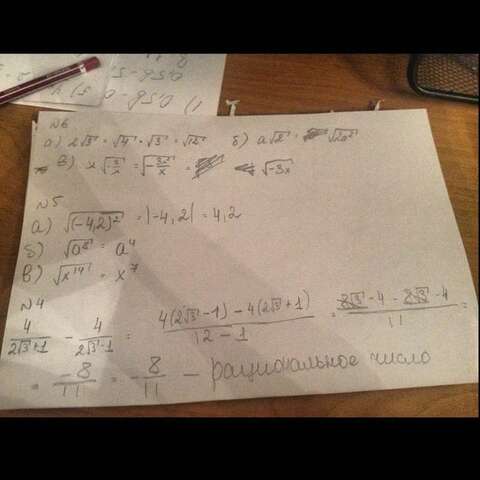 1) 0,5b-0,5)
№6
а) 2√3 = √4 · √3 = √12 б) a√2 = √2a²
в) x√-3/x = √-3x²/x = √-3x
№5
а) √(-4,2)² = |-4,2| = 4,2
б) √a⁸ = a⁴
в) √x¹⁴ = x⁷
№4
4/2√3+1 - 4/2√3-1 = 4(2√3-1)-4(2√3+1)/12-1 = 8√3-4-8√3-4/11 =
= -8/11 = 8/11 - рациональное число